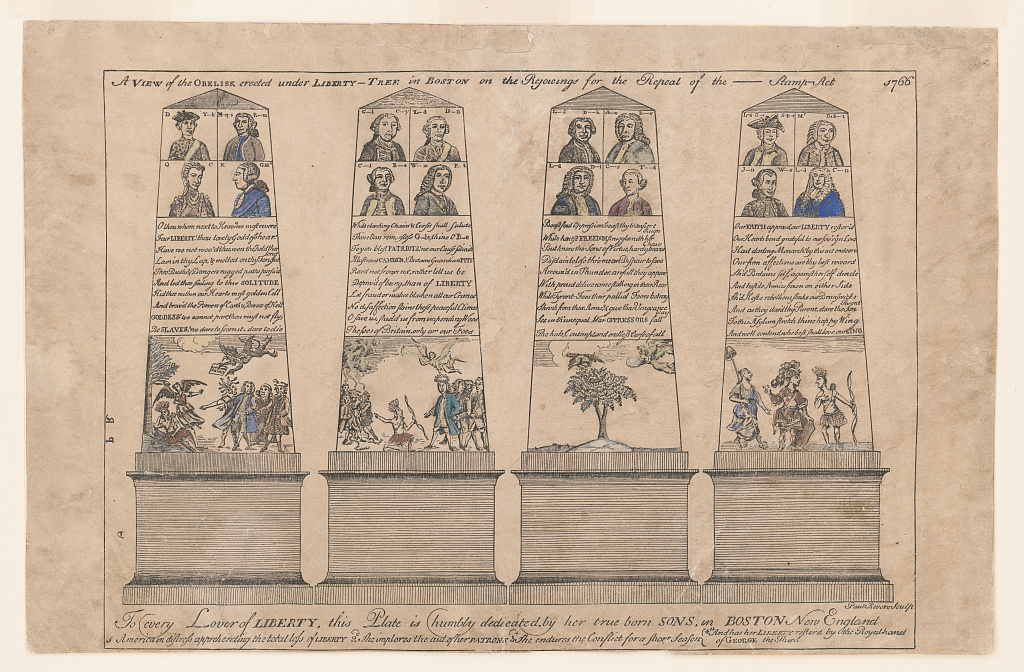 A VIEW of the OBELISK erected under LIBERTY-TREE in BOSTON on the Rejoicings for the Repeal of the —— Stamp-Act 1766
D Y-k
Q C K
O thou whom next to Heav'n we most revere
Fair LIBERTY! thou lovely Goddess hear
Have we not woo'd thee won thee held thee long
Lain in thy Lap & melted on thy Tongue
Thro Deaths & Dangers rugged paths pursu'd
And led thee smiling to this SOLITUDE
Hid thee within our Hearts most golden Cell
And brav'd the Powers of Earth & Powers of Hell
GODDESS! we cannot part thou must not fly
Be SLAVES! we dare to scorn it dare to die
While clanking Chains & Curses shall salute
Thine Ears G-le, thine O B-e
To you blest PATRIOTS, we our Cause submit
Illustrous CAMDEN, Britains Guardian PITT
Recede not, frown not, rather let us be
Depriv'd of being than of LIBERTY
Let fraud or malice blacken all our Crimes
No disaffection stains these peaceful Climes
O save us, shield us from impending Woes
The foes of Britain only are our Foes
Boast foul Oppression, boast thy transient Reign
While honest FREEDOM struggles with her Chain
But know the Sons of Virtue, hardy, brave
Disdain to lose thro mean Despair to save
Arrouz'd in Thunder, awfull they appear
With proud deliverance stalking in their Rear
While Tyrant Foes their pallid Fears betray
Shrink from their Arms & give their Vengeance way
See in th unequal War OPPRESSORS fall
The hate, Contempt, and endless Curse of all
Our FAITH approv'd our LIBERTY restor'd
Our Hearts bend gratefull to our sov'reign Lord
Hail darling Monarch! by this act endear'd
Our firm affections are thy best reward
Sh'd Britains self, against herself divide
And hostile Armies frown on either Side
Sh'd Hosts rebellious shake our Brunswick's Throne
And as they dar'd thy Parent, dare the Son
To this Asylum stretch thine happy Wing
And we'll contend who best shall love our KING
Paul Revere Sculp
To every Lover of LIBERTY, this Plate is humbly dedicated, by her true born SONS, in BOSTON New England
1 America in distress apprehending the total loss of LIBERTY 2d She implores the aid of her PATRONS 3d She endures the Conflict for a short Season 4th And has her LIBERTY restor'd by the Royal hand of GEORGE the Third